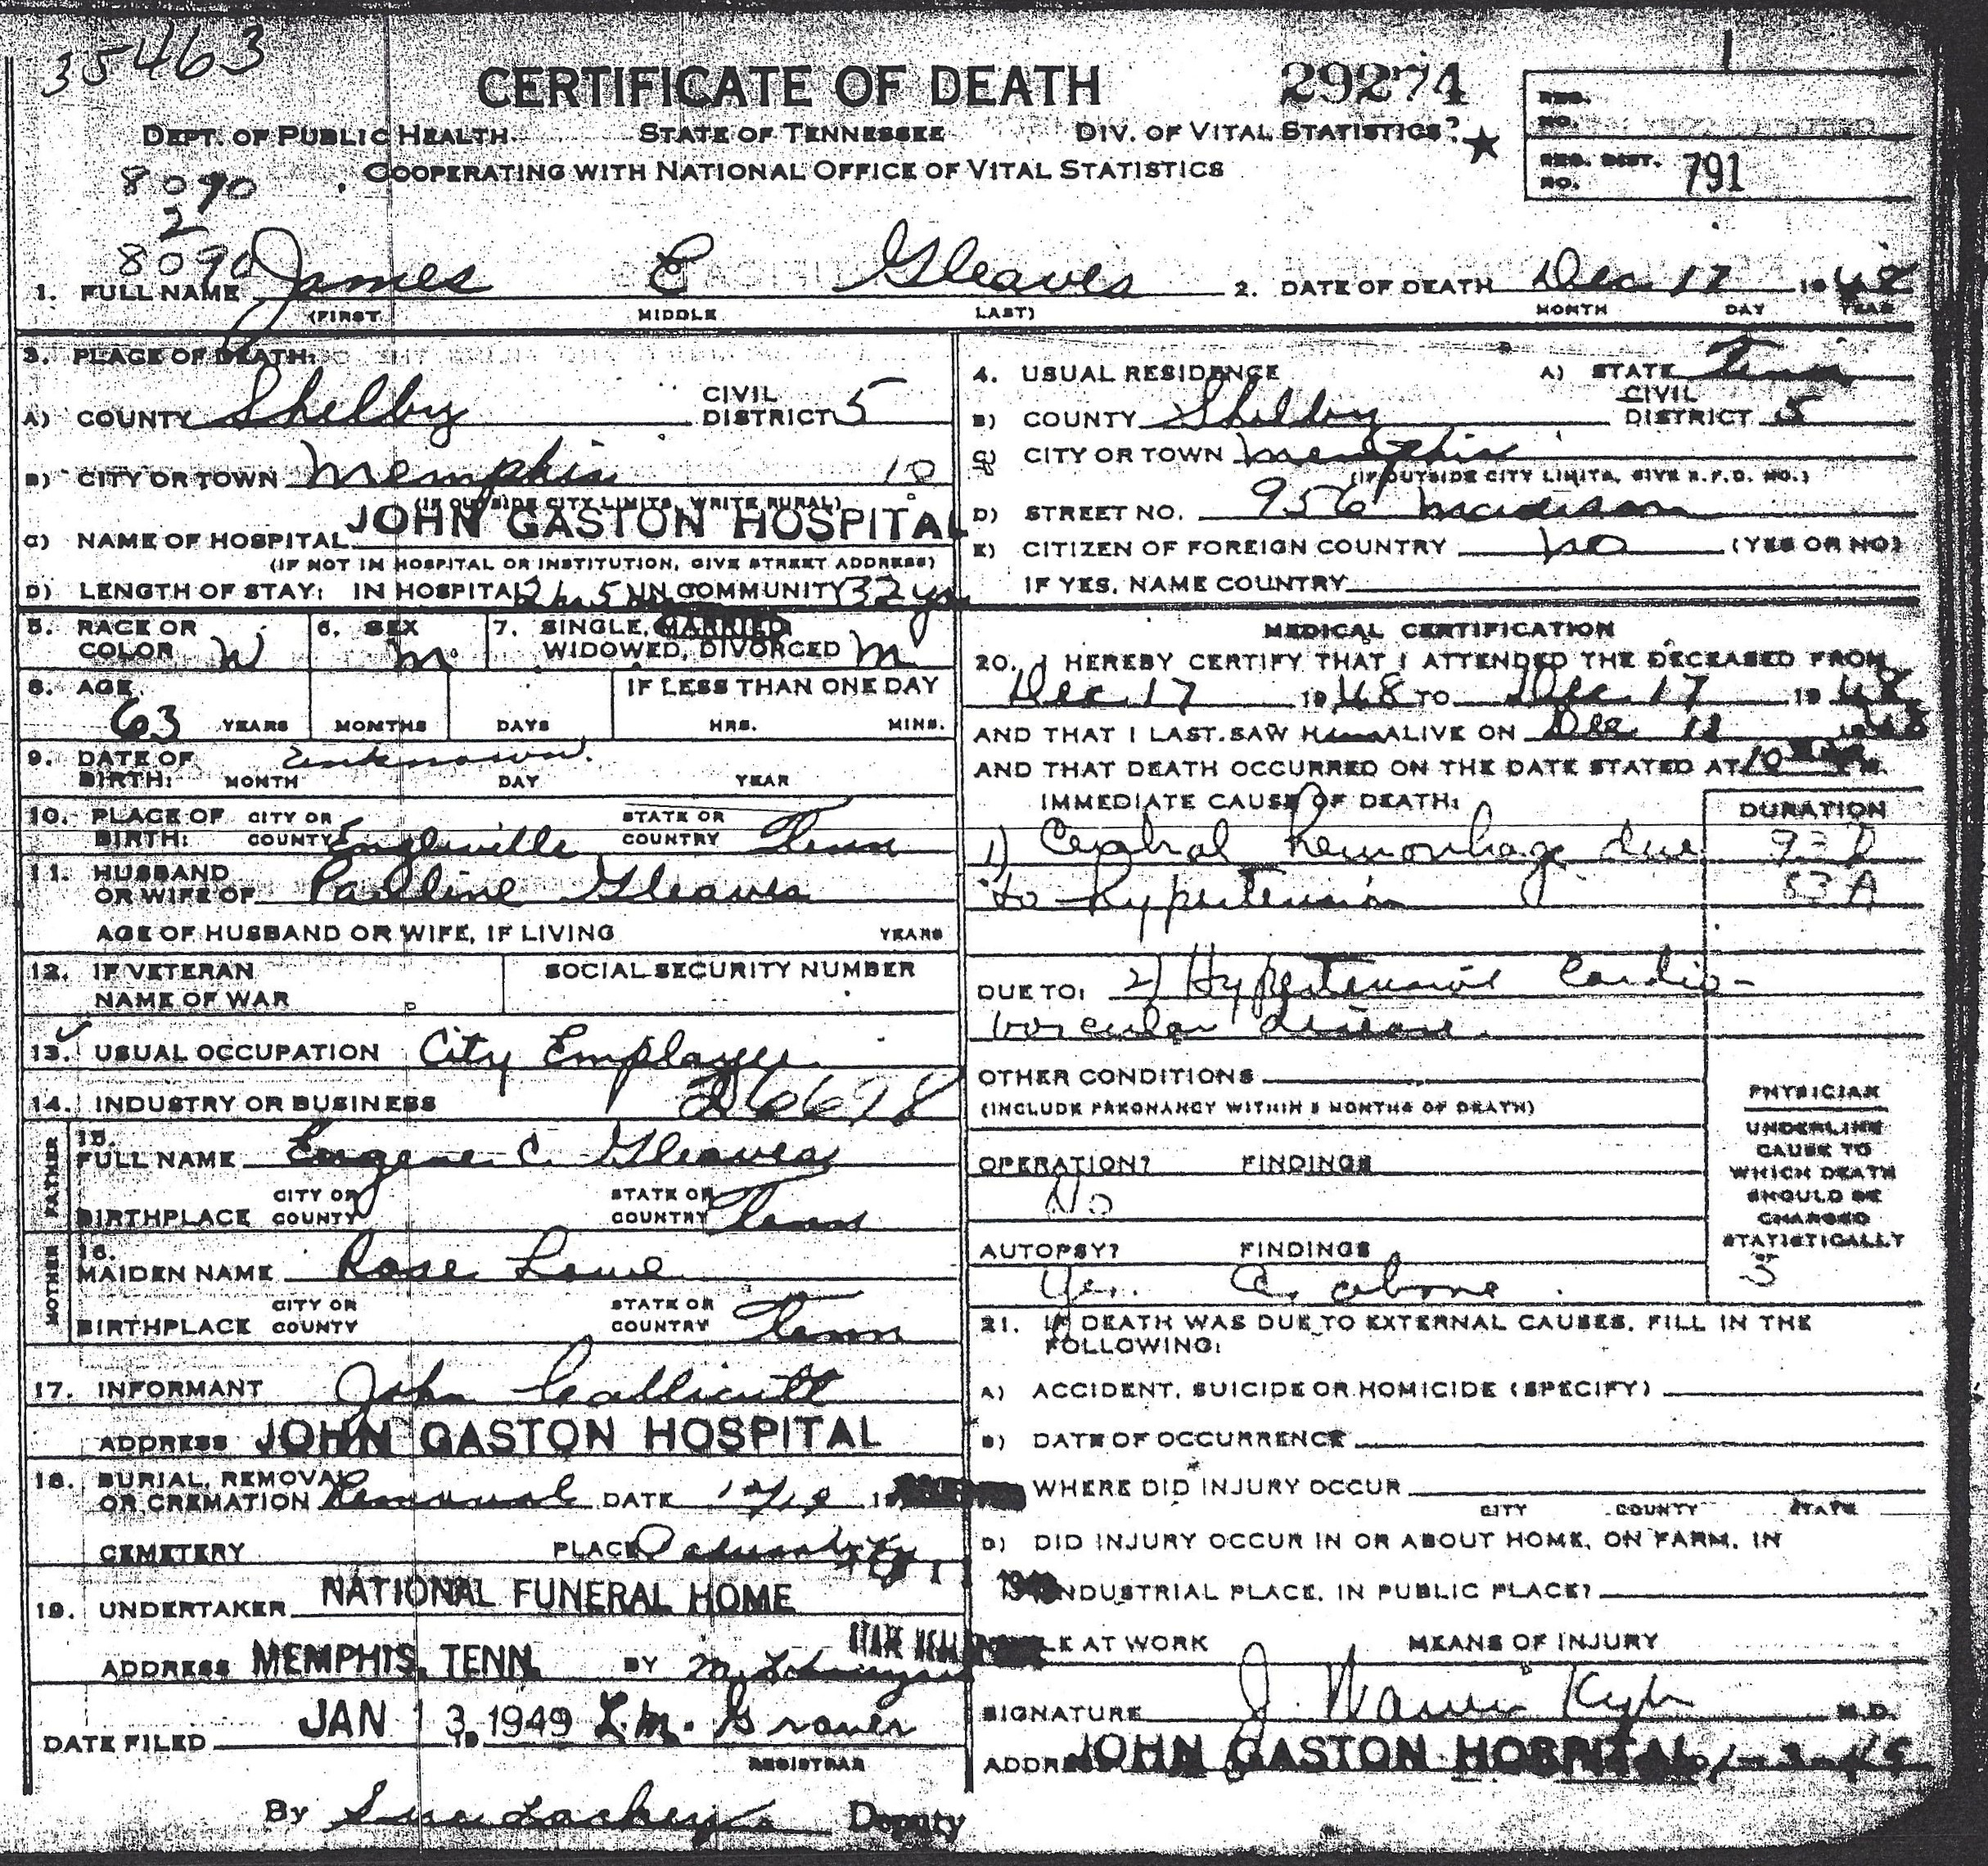 35463
CERTIFICATE OF DEATH 29274
REG. NO.
DEPT. OF PUBLIC HEALTH STATE OF TENNESSEE DIV. OF VITAL STATISTICS
COOPERATING WITH NATIONAL OFFICE OF VITAL STATISTICS
REG. DIST. NO. 791
8090
2
8090
1. FULL NAME James E Gleaves 2. DATE OF DEATH Dec 17 1948
(FIRST MIDDLE LAST) MONTH DAY YEAR
3. PLACE OF DEATH:
A) COUNTY Shelby CIVIL DISTRICT 5
B) CITY OR TOWN Memphis 10
(IF OUTSIDE CITY LIMITS, WRITE RURAL)
C) NAME OF HOSPITAL JOHN GASTON HOSPITAL
(IF NOT IN HOSPITAL OR INSTITUTION, GIVE STREET ADDRESS)
D) LENGTH OF STAY: IN HOSPITAL IN COMMUNITY 32 yrs
4. USUAL RESIDENCE A) STATE Tenn
B) COUNTY Shelby CIVIL DISTRICT 5
C) CITY OR TOWN Memphis
(IF OUTSIDE CITY LIMITS, GIVE R.F.D. NO.)
D) STREET NO. 956 Madison
E) CITIZEN OF FOREIGN COUNTRY no (YES OR NO)
IF YES, NAME COUNTRY
5. RACE OR COLOR W 6. SEX m 7. SINGLE, MARRIED WIDOWED, DIVORCED m
8. AGE IF LESS THAN ONE DAY
63 YEARS MONTHS DAYS HRS. MINS.
9. DATE OF BIRTH: unknown
MONTH DAY YEAR
10. PLACE OF BIRTH: CITY OR COUNTY Eagleville STATE OR COUNTRY Tenn
11. HUSBAND OR WIFE OF Pauline Gleaves
AGE OF HUSBAND OR WIFE, IF LIVING YEARS
12. IF VETERAN NAME OF WAR SOCIAL SECURITY NUMBER
13. USUAL OCCUPATION City Employee
14. INDUSTRY OR BUSINESS 26698
FATHER
15. FULL NAME Eugene C. Gleaves
BIRTHPLACE CITY OR COUNTY STATE OR COUNTRY Tenn
MOTHER
16. MAIDEN NAME Rose Lowe
BIRTHPLACE CITY OR COUNTY STATE OR COUNTRY Tenn
17. INFORMANT John Callicutt
ADDRESS JOHN GASTON HOSPITAL
18. BURIAL, REMOVAL OR CREMATION Removal DATE 12/19 19
CEMETERY PLACE
19. UNDERTAKER NATIONAL FUNERAL HOME
ADDRESS MEMPHIS, TENN. BY
DATE FILED JAN 13 1949 L.M. Graves
REGISTRAR
By Sue Lackey Deputy
MEDICAL CERTIFICATION
20. I HEREBY CERTIFY THAT I ATTENDED THE DECEASED FROM
Dec 17 1948 TO Dec 17 1948
AND THAT I LAST SAW Him ALIVE ON Dec 17 1948
AND THAT DEATH OCCURRED ON THE DATE STATED AT 10
IMMEDIATE CAUSE OF DEATH: DURATION
1) Cerebral hemorrhage due
to hypertension 83 A
DUE TO: 2) Hypertensive Cardio-
vascular disease
OTHER CONDITIONS
(INCLUDE PREGNANCY WITHIN 3 MONTHS OF DEATH)
OPERATION? FINDINGS
No
AUTOPSY? FINDINGS
Yes. above
PHYSICIAN
UNDERLINE
CAUSE TO
WHICH DEATH
SHOULD BE
CHARGED
STATISTICALLY
21. IF DEATH WAS DUE TO EXTERNAL CAUSES, FILL IN THE
FOLLOWING:
A) ACCIDENT, SUICIDE OR HOMICIDE (SPECIFY)
B) DATE OF OCCURRENCE
WHERE DID INJURY OCCUR
CITY COUNTY STATE
D) DID INJURY OCCUR IN OR ABOUT HOME, ON FARM, IN
INDUSTRIAL PLACE, IN PUBLIC PLACE?
AT WORK MEANS OF INJURY
SIGNATURE J. M.D.
ADDRESS JOHN GASTON HOSPITAL